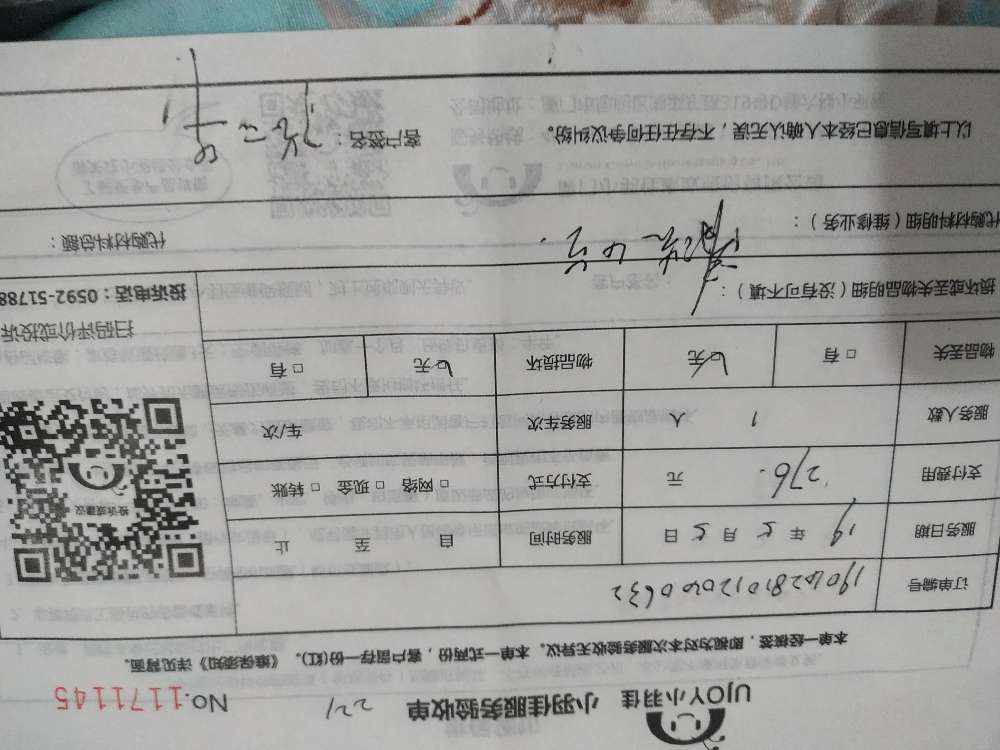 UJOY小羽佳 小羽佳服务验收单 221 NO.1171145
本单一经核签，即视为对本次服务验收无异议。本单一式两份，客户留存一份(红)。《维保须知》详见背面。
订单编号 19062810120400632
服务日期 19 年 7 月 7 日 服务时间 自 至 止
支付费用 276. 元 支付方式 □ 网络 □ 现金 □ 转账
服务人数 1 人 服务车次 车/次
物品丢失 □ 有 □ 无 物品损坏 □ 无 □ 有
投诉或建议
扫码评价或投诉
投诉电话：0592-51788
损坏或丢失物品明细（没有可不填）：
代购材料明细（维修业务）： 代购材料总额：
以上填写信息已经本人确认无误，不存在任何争议纠纷。 客户签名：